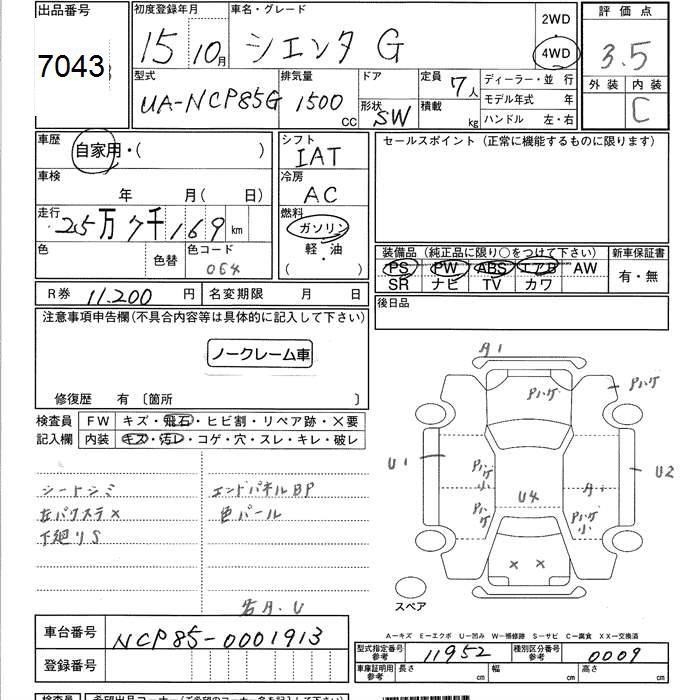 出品番号
7043
初度登録年月
15 10月
車名・グレード
シエンタ G
2WD
4WD
評価点
3.5
外装 内装
C
型式
UA-NCP85G
排気量
1500 CC
ドア
形状
SW
定員
7人
積載
kg
ディーラー・並 行
モデル年式 年
ハンドル 左・右
車歴
自家用・( )
シフト
IAT
セールスポイント (正常に機能するものに限ります)
車検
年 月( 日)
冷房
AC
走行
2.5万7千169 km
燃料
ガソリン
軽・油
( )
色
色替
色コード
064
装備品 (純正品に限り○をつけて下さい)
新車保証書
PS PW ABS エアB AW
SR ナビ TV カワ
有・無
R券 11,200 円
名変期限 月 日
後日品
注意事項申告欄(不具合内容等は具体的に記入して下さい)
ノークレーム車
修復歴 有 〔箇所 〕
検査員
記入欄
FW キズ・飛石・ヒビ割・リペア跡・×要
内装 キズ・汚レ・コゲ・穴・スレ・キレ・破レ
シートシミ
左バクステ×
下廻りS
エンドパネルBP
色パール
A1
Pハゲ
Pハゲ
U1
Pハゲ
小
U2
U4
A1
Pハゲ
Pハゲ
小
× ×
スペア
車台番号
NCP85-0001913
登録番号
A−キズ E−エクボ U−凹み W−補修跡 S−サビ C−腐食 XX−交換済
型式指定番号
参考
11952
種別区分番号
参考
0009
車庫証明用
参考
長さ cm
幅 cm
高さ cm
検査員